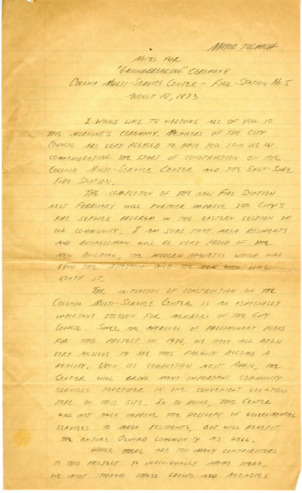 NOTES FOR
"GROUNDBREAKING" CEREMONY
COLONIA MULTI-SERVICE CENTER - FIRE STATION No. 5
AUGUST 10, 1973
I WOULD LIKE TO WELCOME ALL OF YOU TO
THIS MORNING'S CEREMONY. MEMBERS OF THE CITY
COUNCIL ARE VERY PLEASED TO HAVE YOU JOIN US IN
COMMEMORATING THE START OF CONSTRUCTION ON THE
COLONIA MULTI-SERVICE CENTER AND THE EAST-SIDE
FIRE STATION.
THE COMPLETION OF THE NEW FIRE STATION
NEXT FEBRUARY WILL FURTHER IMPROVE THE CITY'S
FIRE SERVICE PROGRAM IN THE EASTERN SECTION OF
OUR COMMUNITY. I AM SURE THAT AREA RESIDENTS
AND BUSINESSMEN WILL BE VERY PROUD OF THE
NEW BUILDING, THE MODERN APPARATUS WHICH WILL
THE MEN WHO WILL
STAFF IT.
THE INITIATION OF CONSTRUCTION ON THE
COLONIA MULTI-SERVICE CENTER IS AN ESPECIALLY
IMPORTANT DECISION FOR MEMBERS OF THE CITY
COUNCIL. SINCE THE APPROVAL OF PRELIMINARY PLANS
FOR THIS PROJECT IN 1970, WE HAVE ALL BEEN
VERY ANXIOUS TO SEE THIS FACILITY BECOME A
REALITY. UPON ITS COMPLETION NEXT THE
CENTER WILL BRING MANY IMPORTANT COMMUNITY
SERVICES TOGETHER IN ONE CONVENIENT LOCATION
HERE ON THIS SITE. IN SO DOING, THIS CENTER
WILL NOT ONLY IMPROVE THE DELIVERY OF GOVERNMENTAL
SERVICES TO AREA RESIDENTS, BUT WILL BENEFIT
THE ENTIRE OXNARD COMMUNITY AS WELL.
WHILE THERE ARE TOO MANY CONTRIBUTORS
TO THIS PROJECT TO INDIVIDUALLY NAME HERE,
WE MUST THANK THOSE GROUPS AND AGENCIES